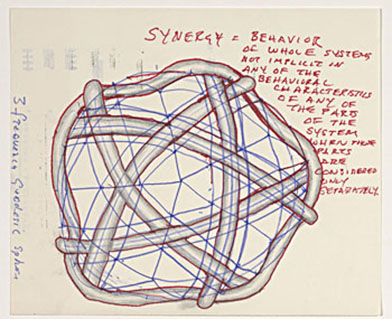 SYNERGY = BEHAVIOR
OF WHOLE SYSTEMS
NOT IMPLICIT IN
ANY OF THE
BEHAVIORAL
CHARACTERISTICS
OF ANY OF
THE PARTS
OF THE
SYSTEM
WHEN THOSE
PARTS
ARE
CONSIDERED
ONLY
SEPARATELY.
3-frequency Geodesic Sphere